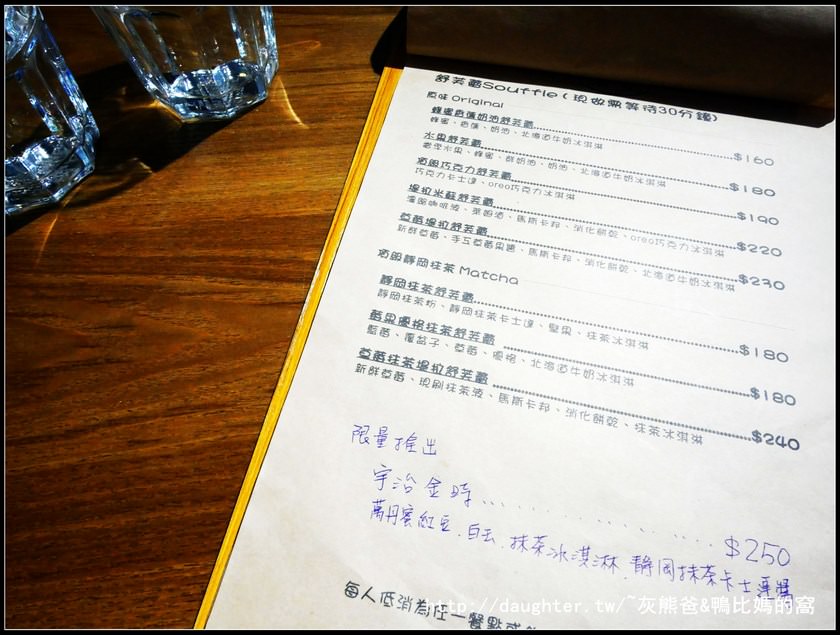 舒芙蕾Souffle(現做需等待30分鐘)
原味 Original
蜂蜜香蕉奶油舒芙蕾 $160
蜂蜜、香蕉、奶油、北海道牛奶冰淇淋
水果舒芙蕾 $180
季水果、蜂蜜、鮮奶油、奶油、北海道牛奶冰淇淋
巧克力舒芙蕾 $190
巧克力卡士達、oreo巧克力冰淇淋
提拉米蘇舒芙蕾 $220
咖啡液、萊姆酒、馬斯卡邦、消化餅乾、oreo巧克力冰淇淋
草莓提拉舒芙蕾 $230
新鮮草莓、手工草莓果醬、馬斯卡邦、消化餅乾、北海道牛奶冰淇淋
靜岡抹茶 Matcha
靜岡抹茶舒芙蕾 $180
靜岡抹茶粉、靜岡抹茶卡士達、堅果、抹茶冰淇淋
莓果優格抹茶舒芙蕾 $180
藍莓、覆盆子、草莓、優格、北海道牛奶冰淇淋
草莓抹茶提拉舒芙蕾 $240
新鮮草莓、現刷抹茶液、馬斯卡邦、消化餅乾、抹茶冰淇淋
限量推出
宇治金時 $250
萬丹蜜紅豆、白玉、抹茶冰淇淋、靜岡抹茶卡士達醬
每人低消為任一餐點或
http://daughter.tw/~灰熊爸&鴨比媽的窩